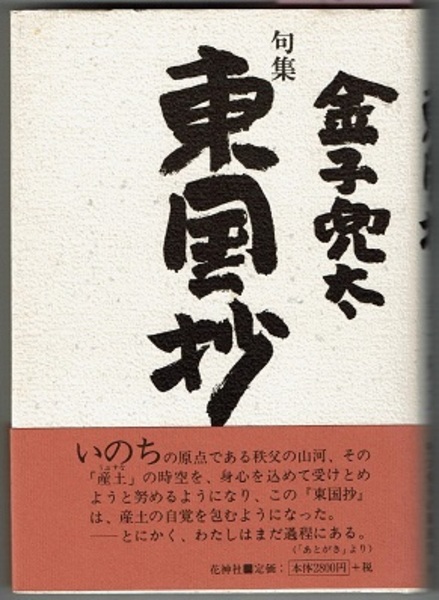 金子兜太
句集
東国抄
いのちの原点である秩父の山河、その
「産土」の時空を、身心を込めて受けとめ
ようと努めるようになり、この『東国抄』
は、産土の自覚を包むようになった。
――とにかく、わたしはまだ過程にある。
(「あとがき」より)
花神社■定価:本体2800円+税